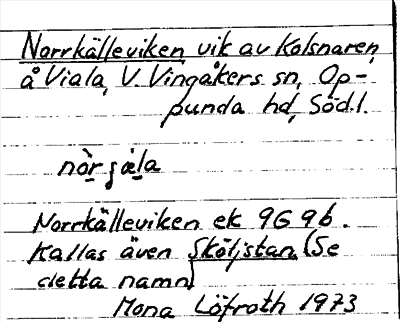 Norrkälleviken, vik av Kolsnaren,
å Viala, V. Vingåkers sn, Op-
punda hd, Södl.
nòr ʝæla
Norrkälleviken ek 9G 9b.
Kallas även Sköljstan. (Se
detta namn)
Mona Löfroth 1973